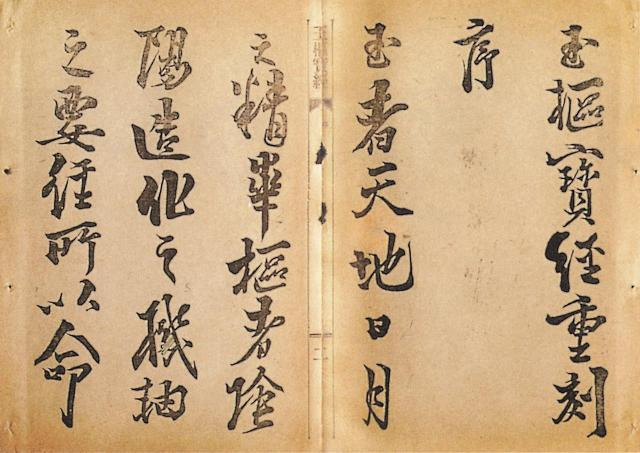 玉樞寶經重刻
序
玉者天地日月
玉樞寶經
二
之精華樞者陰
陽造化之機軸
之要經所以命